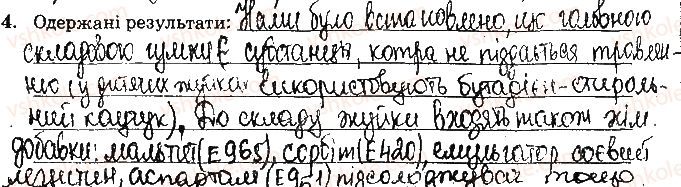 4. Одержані результати: Нами було встановлено, що головною
складовою гумки є субстанція, котра не піддається травлен-
ню (у дитячих жуйках використовують бутадієн-стироль-
ний каучук), До складу жуйки входять також хім.
добавки: мальтит (Е965), сорбіт (Е420), емульгатор соєвий
лецитин, аспартам (Е951) підсолоджувач тощо